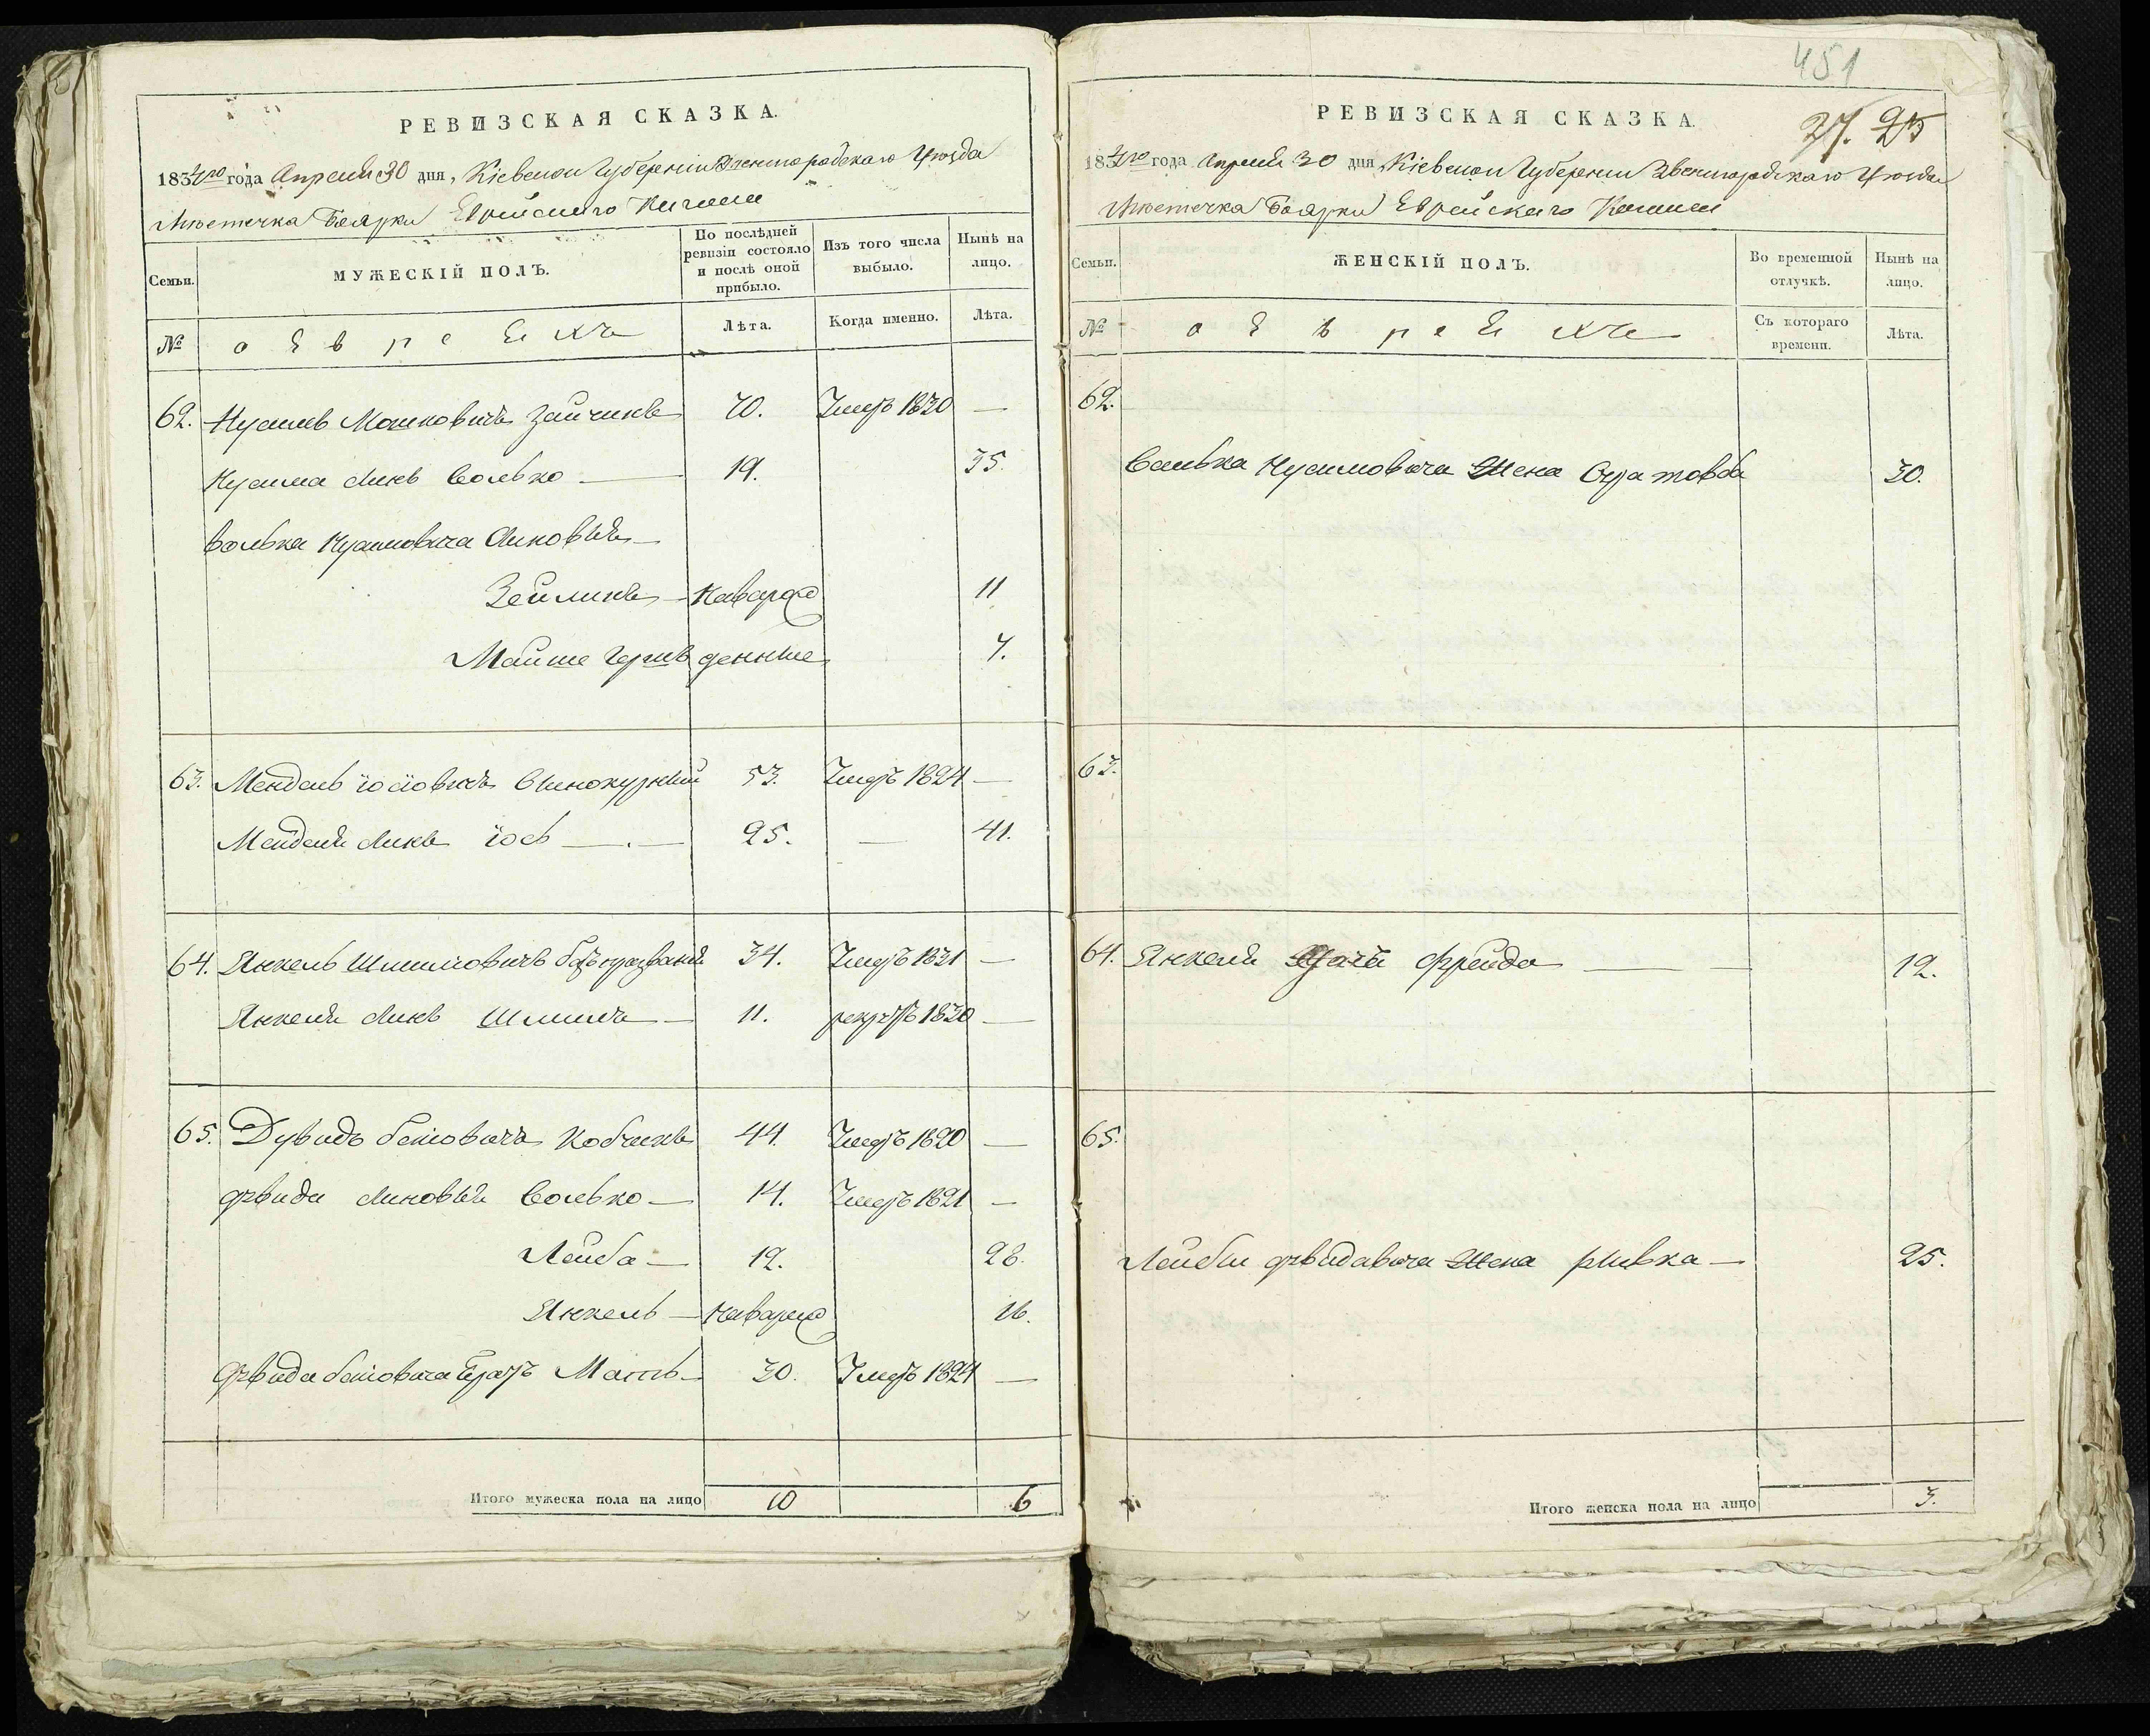 РЕВИЗСКАЯ СКАЗКА.
1834го года Апреля 30 дня, Кіевской Губерніи Звенигородскаго Уезда
Местечка Боярки Еврейскаго Кагала
Семьи.
МУЖЕСКІЙ ПОЛЪ.
По послѣдней ревизіи состояло и послѣ оной прибыло.
Изъ того числа выбыло.
Нынѣ на лицо.
№
о Евреяхъ
Лѣта.
Когда именно.
Лѣта.
62. Нусимъ Мошковичъ Зайчикъ 70. Умеръ 1830 —
Нусима сынъ Волько — 19. 35.
Волька Нусимовича сыновья —
Зейликъ — Новорож 11
Мойше денные 7.
63. Мендель Іосіовичъ Винокурный 53. Умеръ 1824 —
Менделя сынъ Іось — 25. — 41.
64. Янкель Шлиомовичъ безъ прозванія 34. Умеръ 1831 —
Янкеля сынъ Шлиома — 11. рекрутъ 1830 —
65. Дувидъ Беніовичъ Кобчикъ 44. Умеръ 1820 —
Дувида сыновья Волько — 14. Умеръ 1821 —
Лейба — 12. 28.
Янкель — Новорож 16.
Дувида Беніовича братъ Мать — 30. Умеръ 1824 —
Итого мужеска пола на лицо 10 6
451
27. 25
РЕВИЗСКАЯ СКАЗКА.
1834го года Апреля 30 дня, Кіевской Губерніи Звенигородскаго Уезда
Местечка Боярки Еврейскаго Кагала
Семьи.
ЖЕНСКІЙ ПОЛЪ.
Во временной отлучкѣ.
Нынѣ на лицо.
№
о Евреяхъ
Съ котораго времени.
Лѣта.
62.
Волька Нусимовича жена 30.
63.
64. Янкеля дочь Фрейда — 12.
65.
Лейбы Дувидовича жена Ривка — 25.
Итого женска пола на лицо 3.